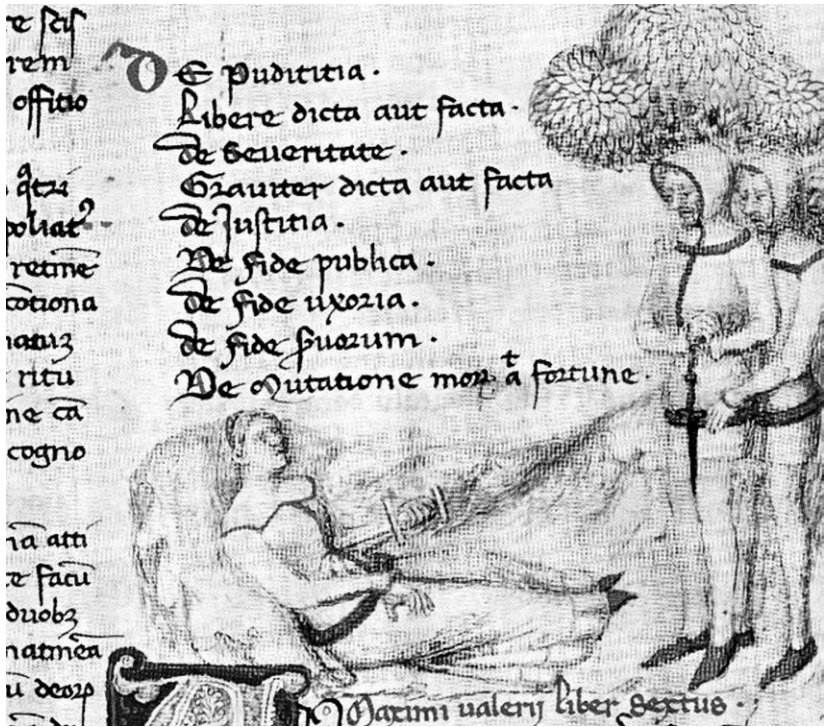 re scis
rem
offitio
qtri
poliat
retine
cotiona
natuz
ritu
ne ca
cogno
na atti
te facu
duobz
natmea
u deorp
De Pudititia .
Libere dicta aut facta .
de Seueritate .
Grauiter dicta aut facta
de Justitia .
De fide publica .
de fide uxoria .
de fide seruorum .
De Mutatione mor a fortune .
Maximi ualerij liber sextus .